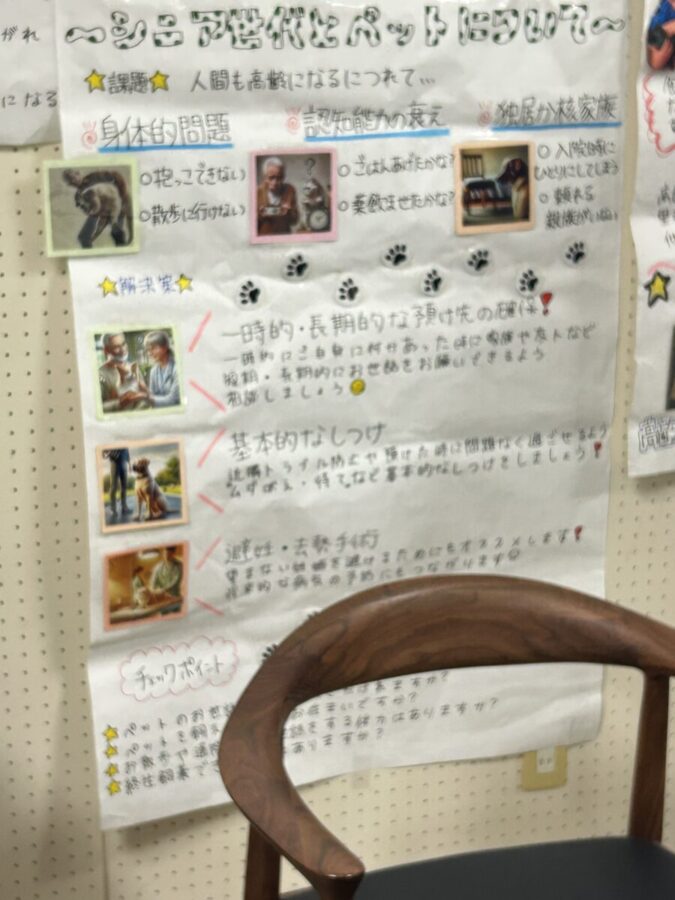 がれ
になる
～シニア世代とペットについて～
課題 人間も高齢になるにつれて…
身体的問題
認知能力の衰え
独居か核家族
○抱っこできない
○散歩に行けない
○ごはんあげたかな?
○薬飲ませたかな?
○入院時に
ひとりにしてしまう
○頼れる
親族がいない
解決案
一時的・長期的な預け先の確保!
一時的にご自身に何かあった時に家族や友人など
短期・長期的にお世話をお願いできるよう
相談しましょう
基本的なしつけ
近隣トラブル防止や預けた時に問題なく過ごせるよう
ムダぼえ・待てなど基本的なしつけをしましょう!
避妊・去勢手術
望まない妊娠を避けるためにもオススメします!
将来的な病気の予防にもつながります
チェックポイント
ペットのお世
ますか?
ペットを飼え
お住まいですか?
お散歩や
をする体力はありますか?
終生飼養で
ありますか?